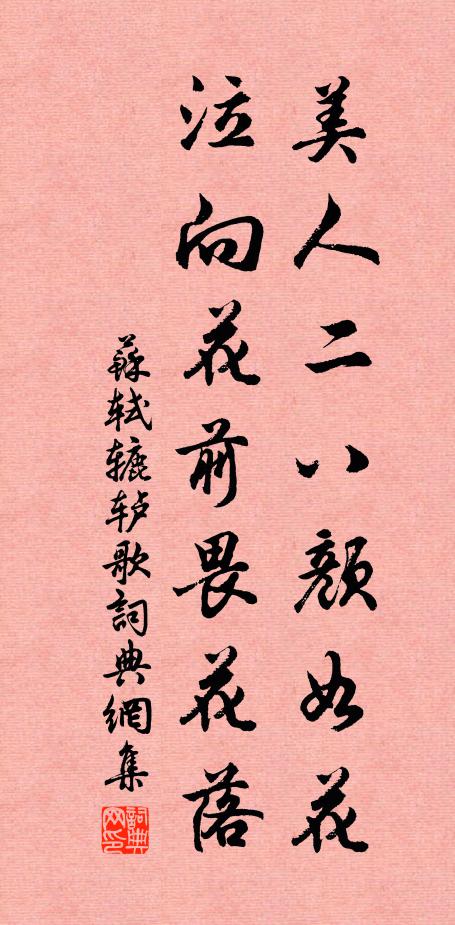 美人二八颜如花
泣向花前畏花落
蘇轼辘轳歌詞典網集
詞典网印